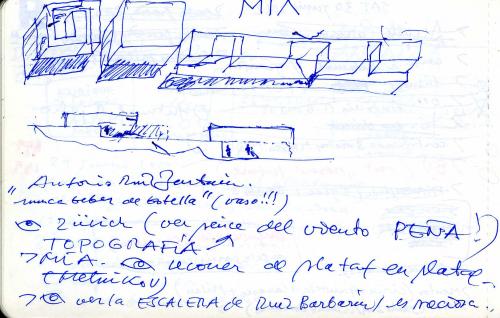 MIA
" Antonio Ruiz Barbarin.
nunca beber de botella" (vaso!!!)
Zürich (ver peine del viento PEÑA!)
TOPOGRAFÍA
> MIA. recorrer de plataf en plataf.
(Melnikov)
> ver la ESCALERA de Ruiz Barbarin/ es preciosa.